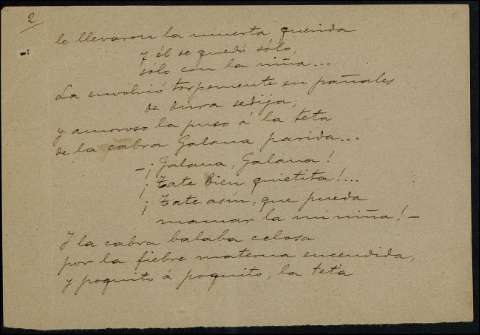 2
le llevaron la muerta querida
y él se quedó sólo,
sólo con la niña...
La envolvió torpemente en pañales
de dura sedija,
y amoroso la puso á la teta
de la cabra Galana parida...
—¡Galana, Galana!
¡Tate bien quietita!...
¡Tate asín, que pueda
mamar la mi niña!—
Y la cabra balaba celosa
por la fiebre materna encendida,
y poquito á poquito, la teta